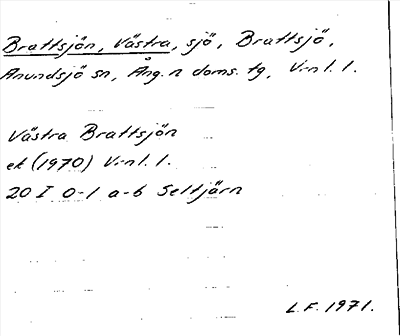 Brattsjön, Västra, sjö, Brattsjö,
Anundsjö sn, Ång. n doms. tg, V-nl. l.
Västra Brattsjön
ek (1970) V-nl. l.
20 I 0-1 a-b Seltjärn
L.F. 1971.